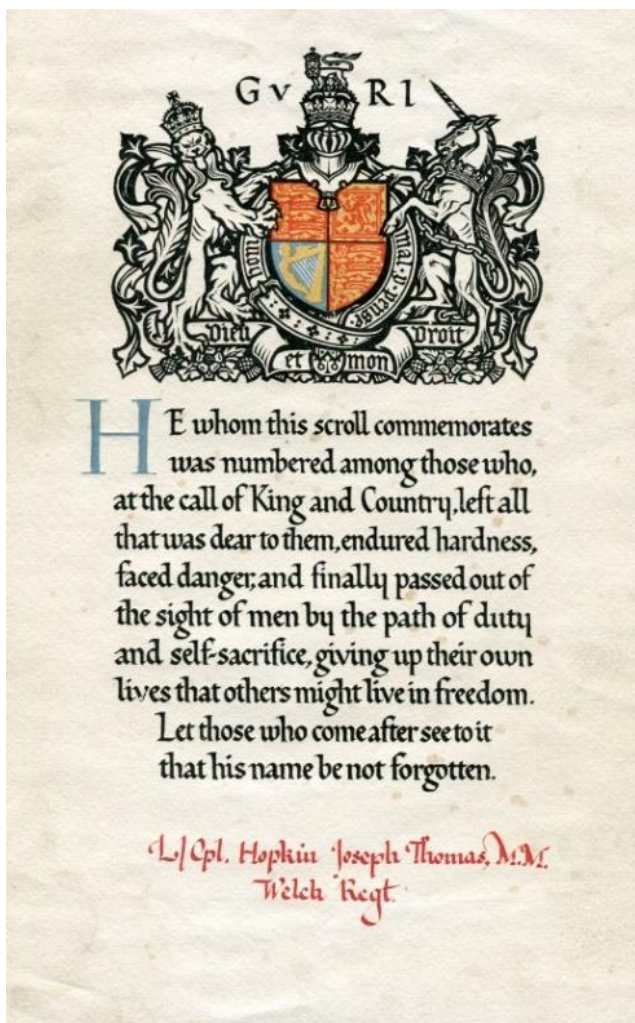 G V R I
Honi mal-y-pense
Dieu Droit
et mon
HE whom this scroll commemorates
was numbered among those who,
at the call of King and Country, left all
that was dear to them, endured hardness,
faced danger, and finally passed out of
the sight of men by the path of duty
and self-sacrifice, giving up their own
lives that others might live in freedom.
Let those who come after see to it
that his name be not forgotten.
L/Cpl. Hopkin Joseph Thomas, M.M.
Welch Regt.